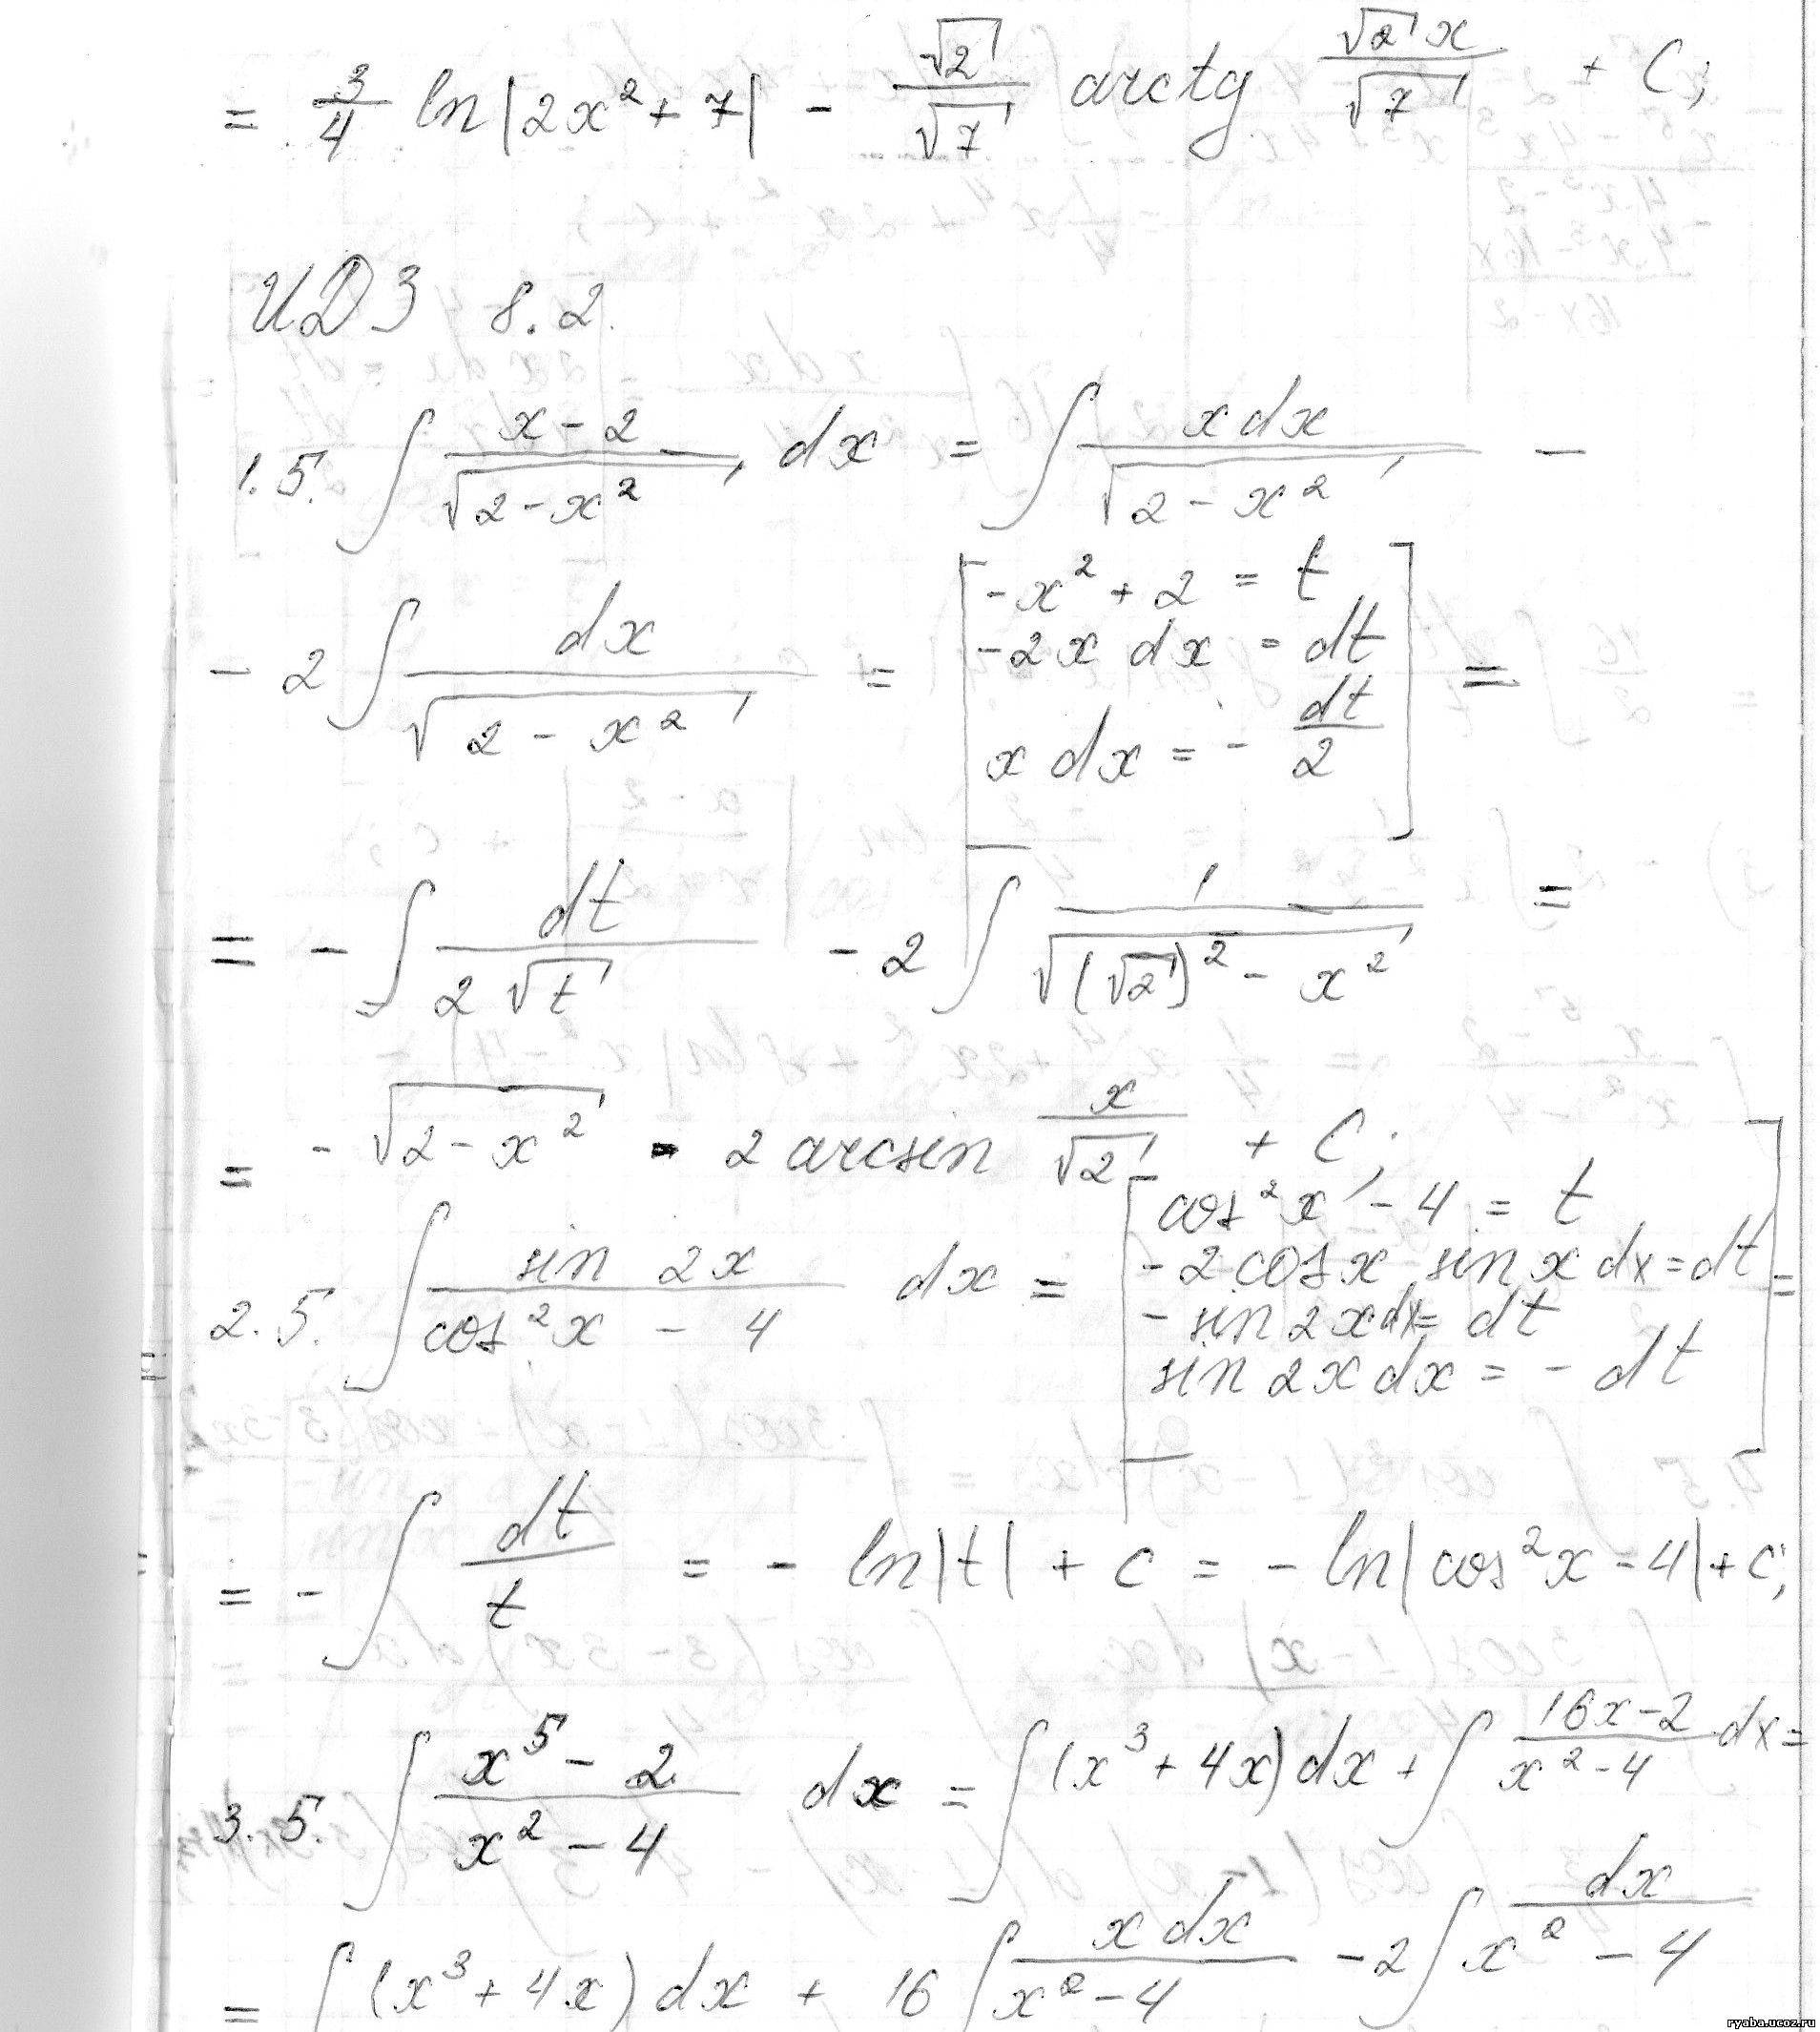 = 3/4 ln|2x² + 7| - √2/√7 arctg √2 x/√7 + C;
ИДЗ 8.2.
1.5. ∫ (x - 2)/√(2 - x²) dx = ∫ x dx/√(2 - x²) -
- 2 ∫ dx/√(2 - x²) = [-x² + 2 = t
-2x dx = dt
x dx = - dt/2] =
= - ∫ dt/(2√t) - 2 ∫ 1/√((√2)² - x²) =
= - √(2 - x²) - 2 arcsin x/√2 + C;
2.5. ∫ sin 2x/(cos²x - 4) dx = [cos²x - 4 = t
- 2 cos x sin x dx = dt
- sin 2x dx = dt
sin 2x dx = - dt] =
= - ∫ dt/t = - ln|t| + C = - ln|cos²x - 4| + C;
3.5. ∫ (x⁵ - 2)/(x² - 4) dx = ∫ (x³ + 4x) dx + ∫ (16x - 2)/(x² - 4) dx =
= ∫ (x³ + 4x) dx + 16 ∫ x dx/(x² - 4) - 2 ∫ dx/(x² - 4)
ryaba.ucoz.ru